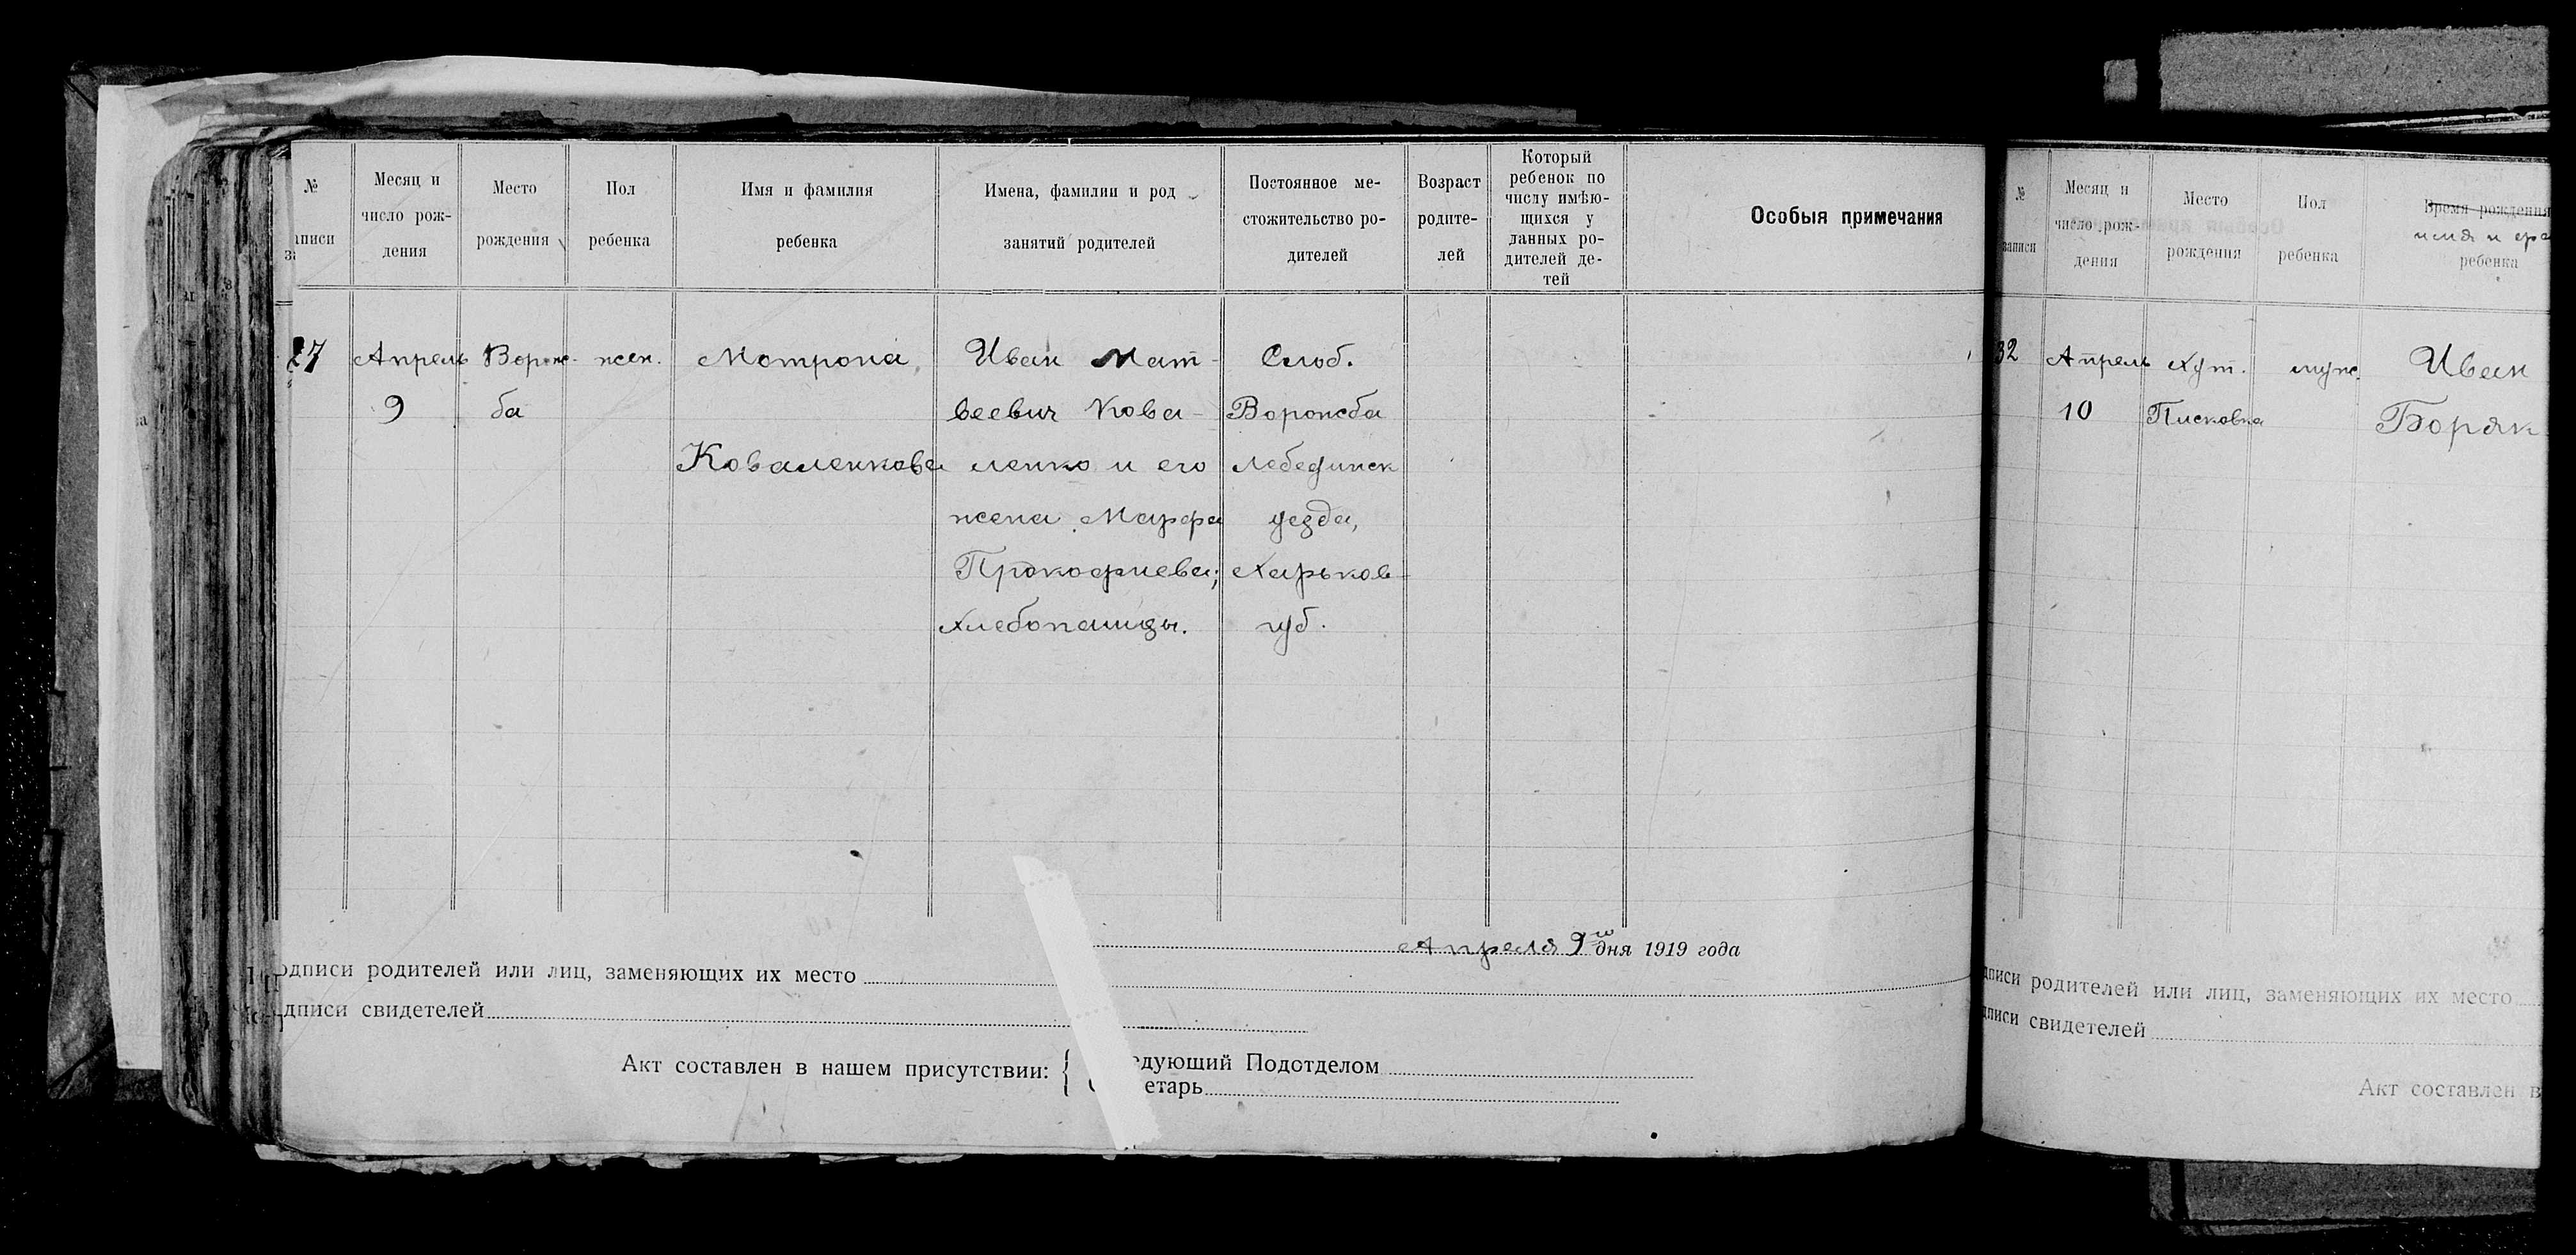 №
записи
Месяц и
число рож-
дения
Место
рождения
Пол
ребенка
Имя и фамилия
ребенка
Имена, фамилии и род
занятий родителей
Постоянное ме-
стожительство ро-
дителей
Возраст
родите-
лей
Который
ребенок по
числу имѣю-
щихся у
данных ро-
дителей де-
тей
Особыя примечания
27
Апрель
9
Ворож-
ба
жен.
Мотрона
Коваленкова
Иван Мат-
веевич Кова-
ленко и его
жена Марфа
Прокофиева;
хлебопашцы.
Слоб.
Ворожба
Лебединск
уезда,
Харьков-
губ.
Апреля 9го дня 1919 года
одписи родителей или лиц, заменяющих их место
дписи свидетелей
Акт составлен в нашем присутствии:
едующий Подотделом
етарь
№
записи
Месяц и
число рож-
дения
Место
рождения
Пол
ребенка
Время рождения
имя и
ребенка
32
Апрель
10
Хут.
Писковка
муж.
Иван
Боряк
дписи родителей или лиц, заменяющих их место
дписи свидетелей
Акт составлен в